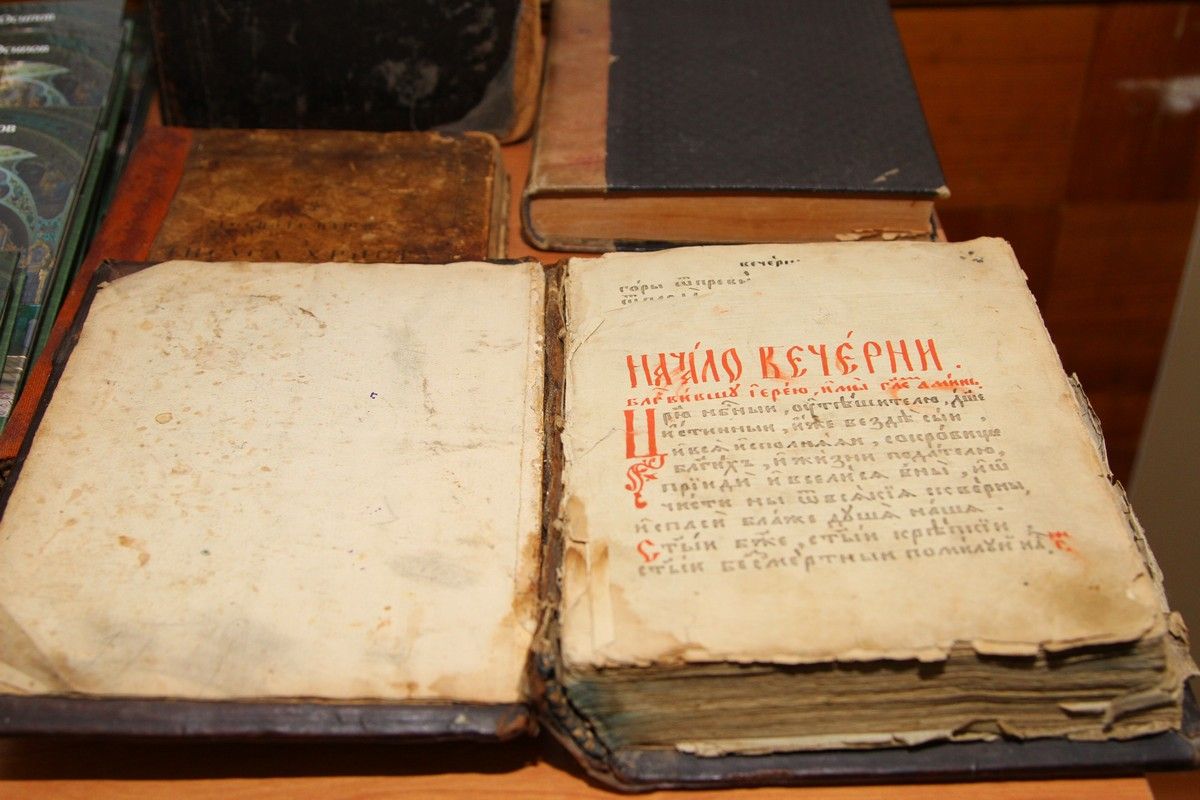 Осипов
Осипов
ов
вечерн
го́ры ѿ прєвъ
НАЧА́ЛО ВЕЧЕ́РНИ.
Бл҃гви́вшу і҆ере́ю, и҆ мы̀ гл҃ем а҆ми́нь.
Цр҃ю нбⷭ҇ный, оу҆тѣ́шителю, дш҃е
и҆́стинный, и҆́же вездѣ̀ сы́й,
и҆ всѧ̀ и҆сполнѧ́ѧй, сокро́вище
бл҃ги́хъ, и҆ жи́зни пода́телю,
прїидѝ и҆ всели́сѧ в ны̀, и҆ ѡ҆
чи́сти ны̀ ѿ всѧ́кїѧ скве́рны,
и҆ спасѝ бла́же ду́ша на́ша.
Ст҃ы́й бж҃е, ст҃ы́й крѣ́пкїй
ст҃ы́й безсме́ртный поми́луй на́